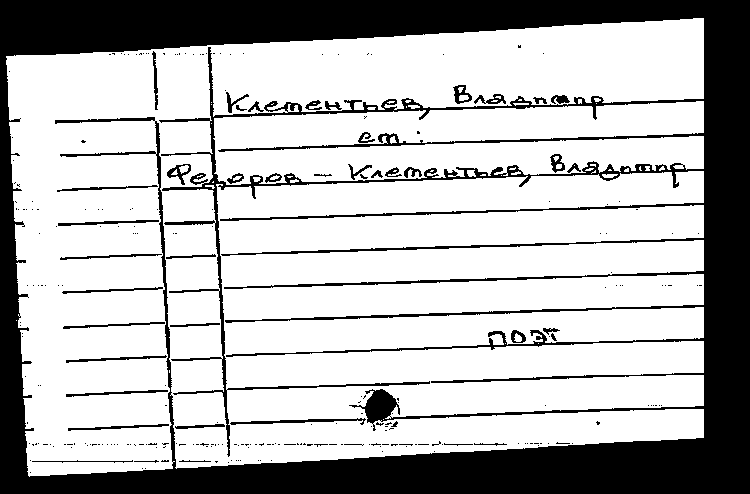 Клементьев, Владимир
см.:
Федоров - Клементьев, Владимир
ПОЭТ